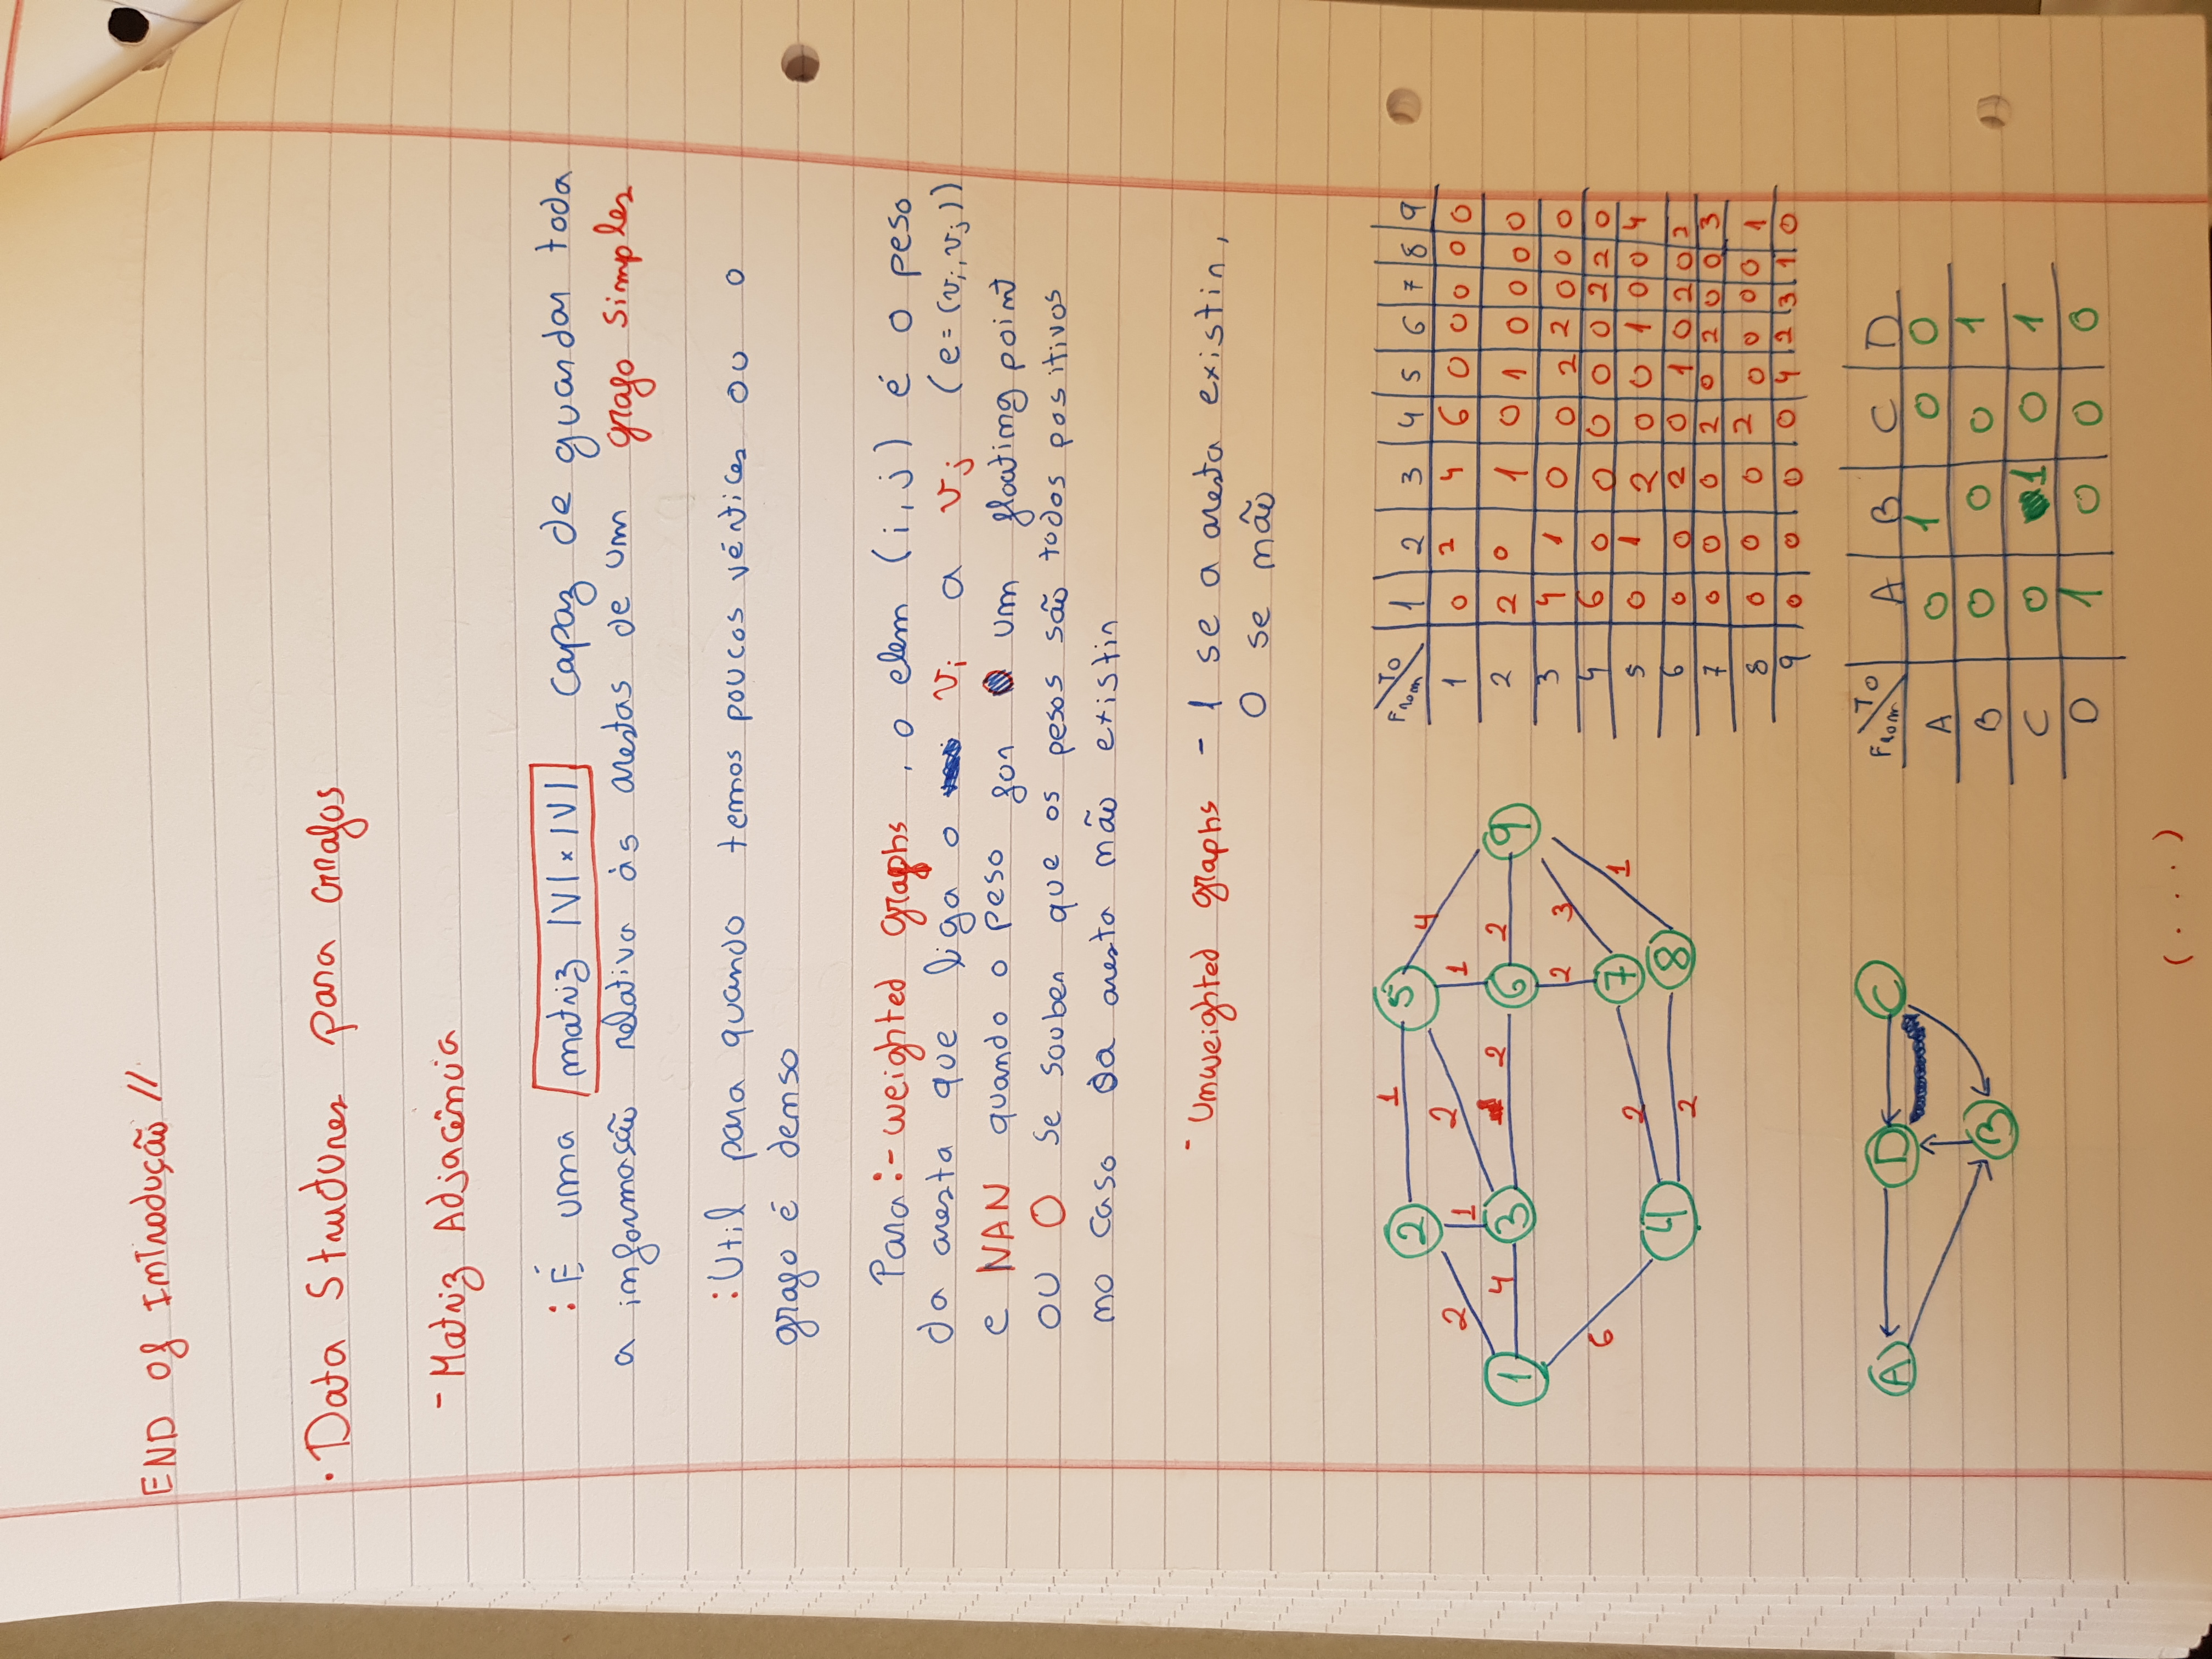 END of Introdução //
• Data Structures para Grafos
- Matriz Adjacência
: É uma matriz |V| × |V| capaz de guardar toda
a informasão relativa às arestas de um grafo simples
: Util para quando temos poucos vértices ou o
grafo é denso
Para :- weighted graphs , o elem (i,j) é o peso
da aresta que liga o vi a vj (e=(vi,vj))
e NAN quando o peso for um floating point
ou 0 se souber que os pesos são todos positivos
no caso da aresta não existir
- Unweighted graphs - 1 se a aresta existir,
0 se não
2 1 5 4
2 1 2 1
1 4 3 2 6 2 9
2 3
6 7 1
4 2 8
2
From \ To 1 2 3 4 5 6 7 8 9
1 0 2 4 6 0 0 0 0 0
2 2 0 1 0 1 0 0 0 0
3 4 1 0 0 2 2 0 0 0
4 6 0 0 0 0 0 2 2 0
5 0 1 2 0 0 1 0 0 4
6 0 0 2 0 1 0 2 0 2
7 0 0 0 2 0 2 0 0 3
8 0 0 0 2 0 0 0 0 1
9 0 0 0 0 4 2 3 1 0
A D C
B
From \ To A B C D
A 0 1 0 0
B 0 0 0 1
C 0 1 0 1
D 1 0 0 0
(...)